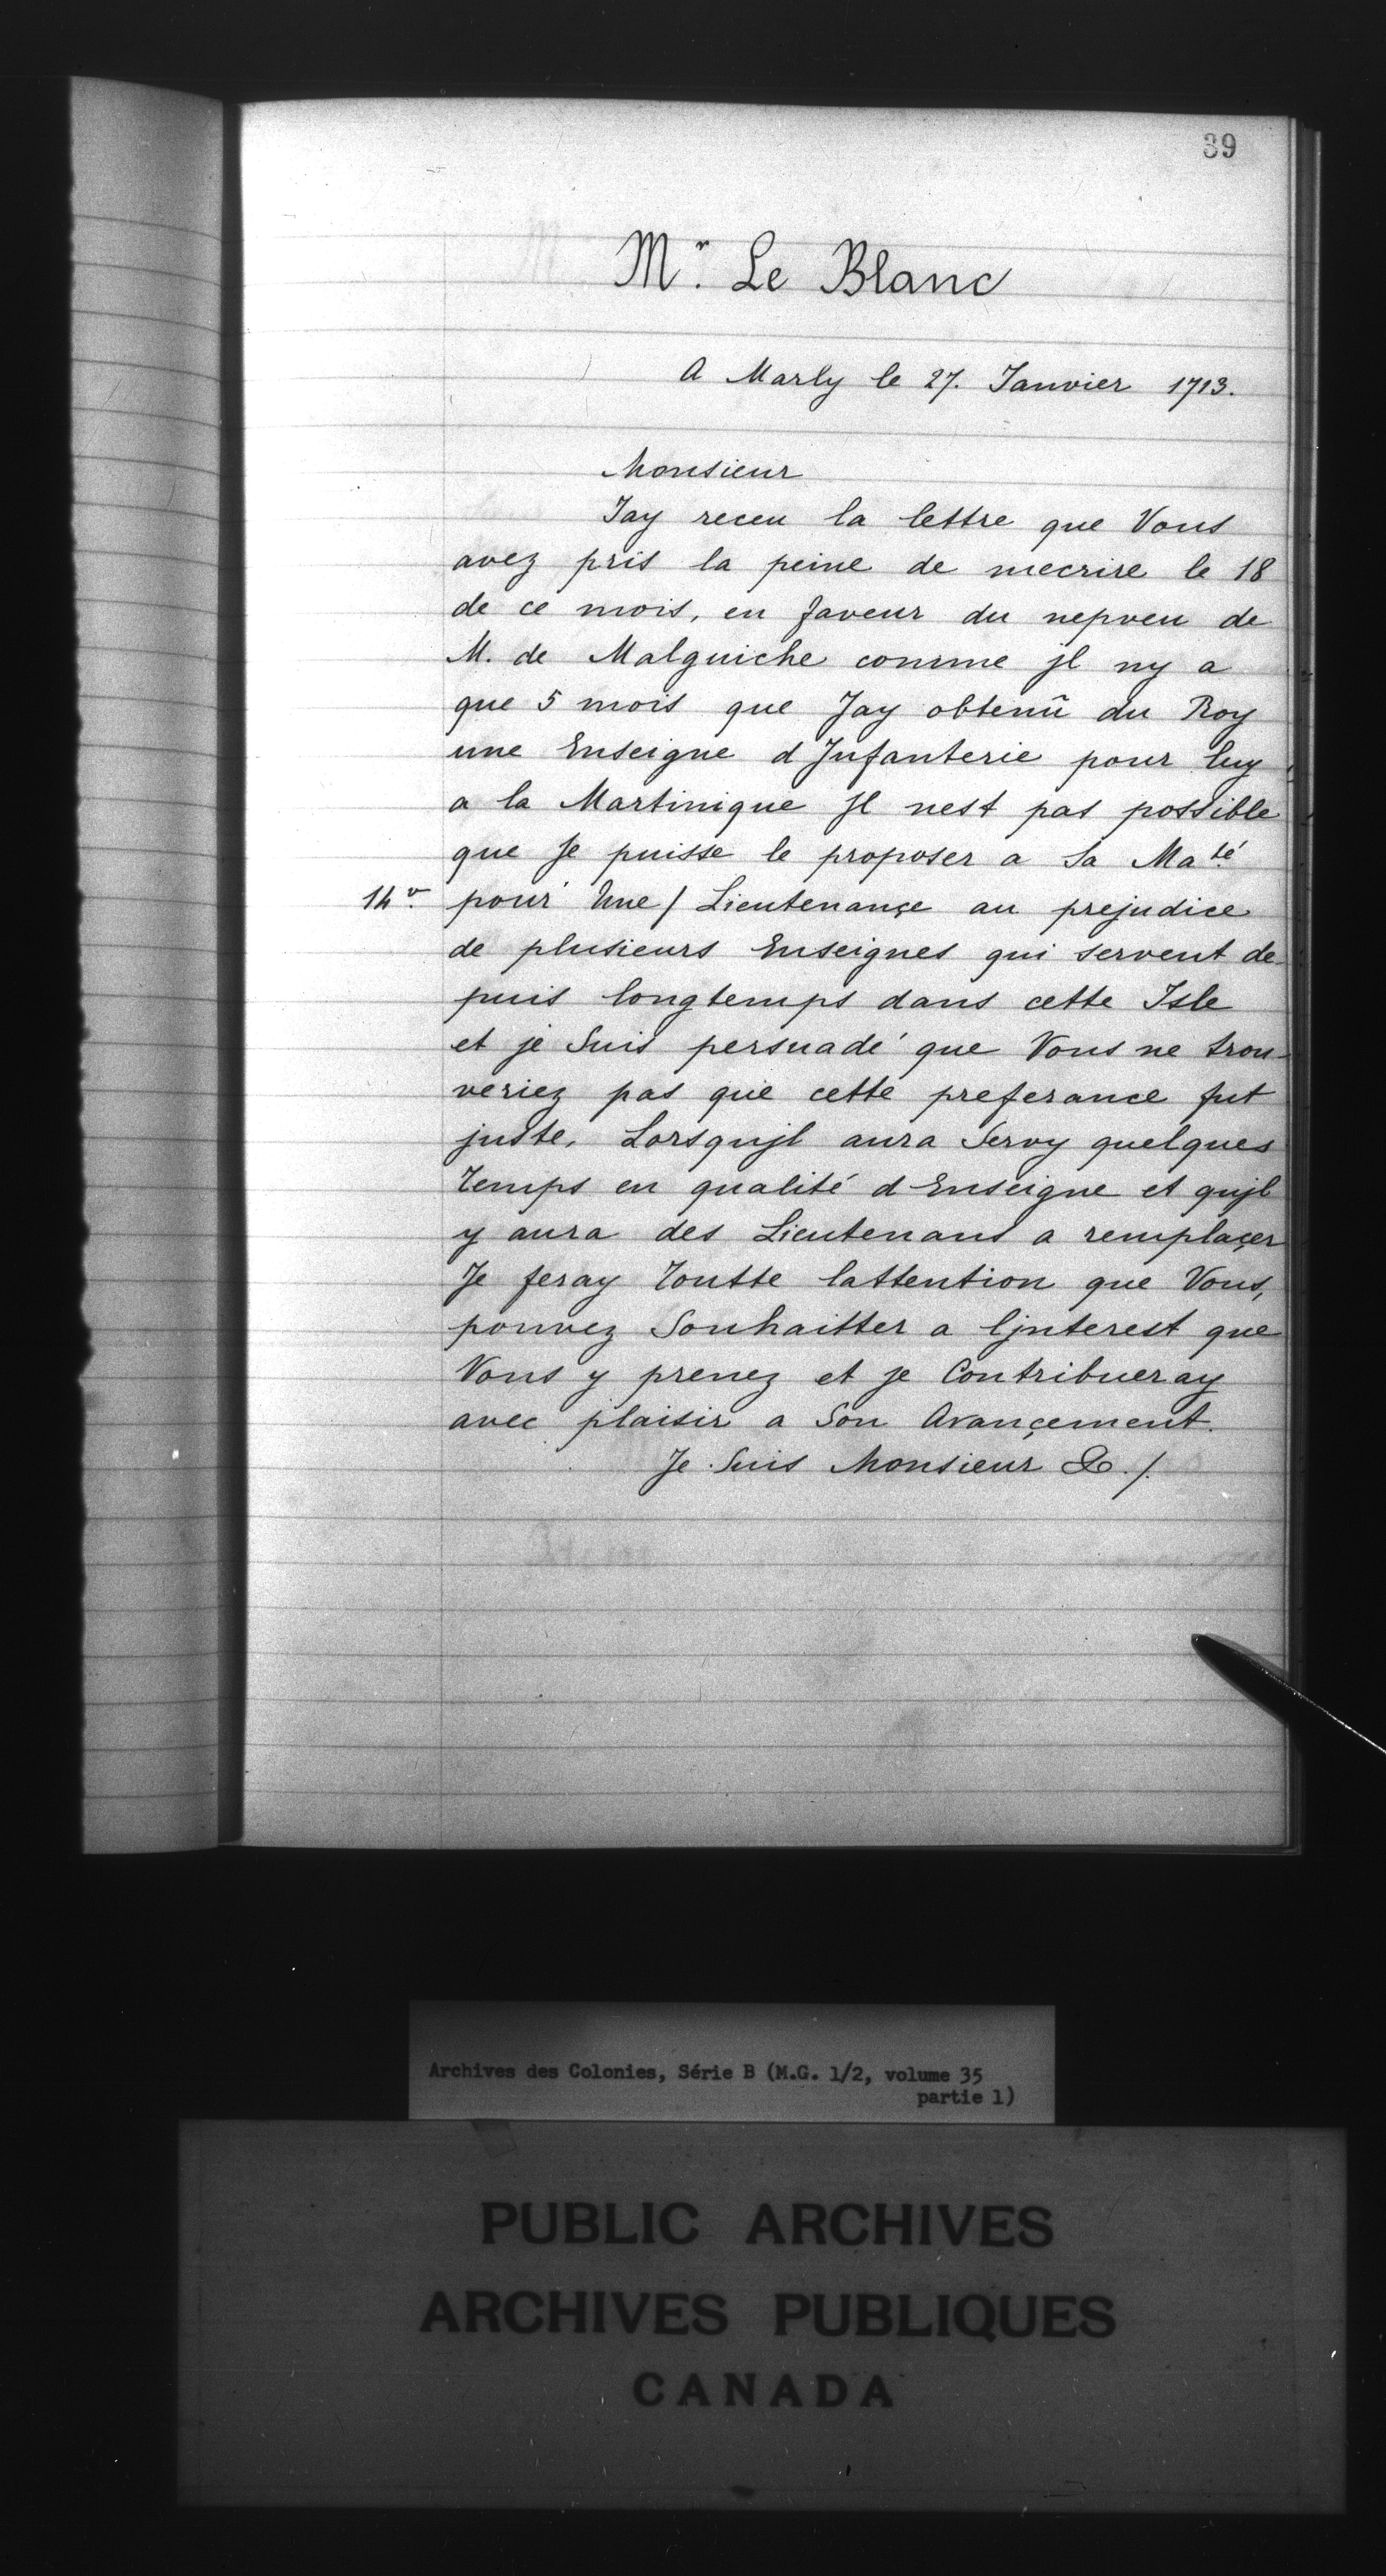 39
Mr. Le Blanc
A Marly le 27. Janvier 1713.
Monsieur
Jay receu la lettre que Vous
avez pris la peine de mecrire le 18
de ce mois, en faveur du nepveu de
M. de Malguiche comme jl ny a
que 5 mois que Jay obtenû du Roy
une Enseigne d Jnfanterie pour luy
a la Martinique Jl nest pas possible
que Je puisse le proposer a Sa Mate.
14v. pour Une / Lieutenançe au prejudice
de plusieurs Enseignes qui servent de-
puis longtemps dans cette Isle
et je Suis persuadé que Vous ne trou-
veriez pas que cette preferance fut
juste. Lorsqujl aura Servy quelques
Temps en qualité d Enseigne et qujl
y aura des Lieutenans a remplaçer
Je feray Toutte lattention que Vous,
pouvez Souhaitter a ljnterest que
Vous y prenez et je Contribueray
avec plaisir a Son Avançement.
Je Suis Monsieur &./.
Archives des Colonies, Série B (M.G. 1/2, volume 35
partie 1)
PUBLIC ARCHIVES
ARCHIVES PUBLIQUES
CANADA